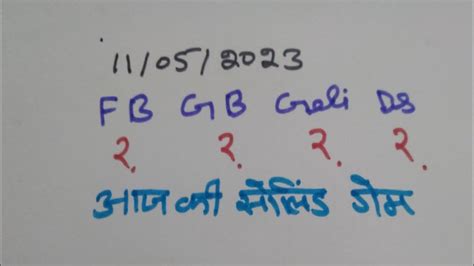 11/05/2023
FB GB Gali DS
२. २. २. २.
आज की सोलिड गेम